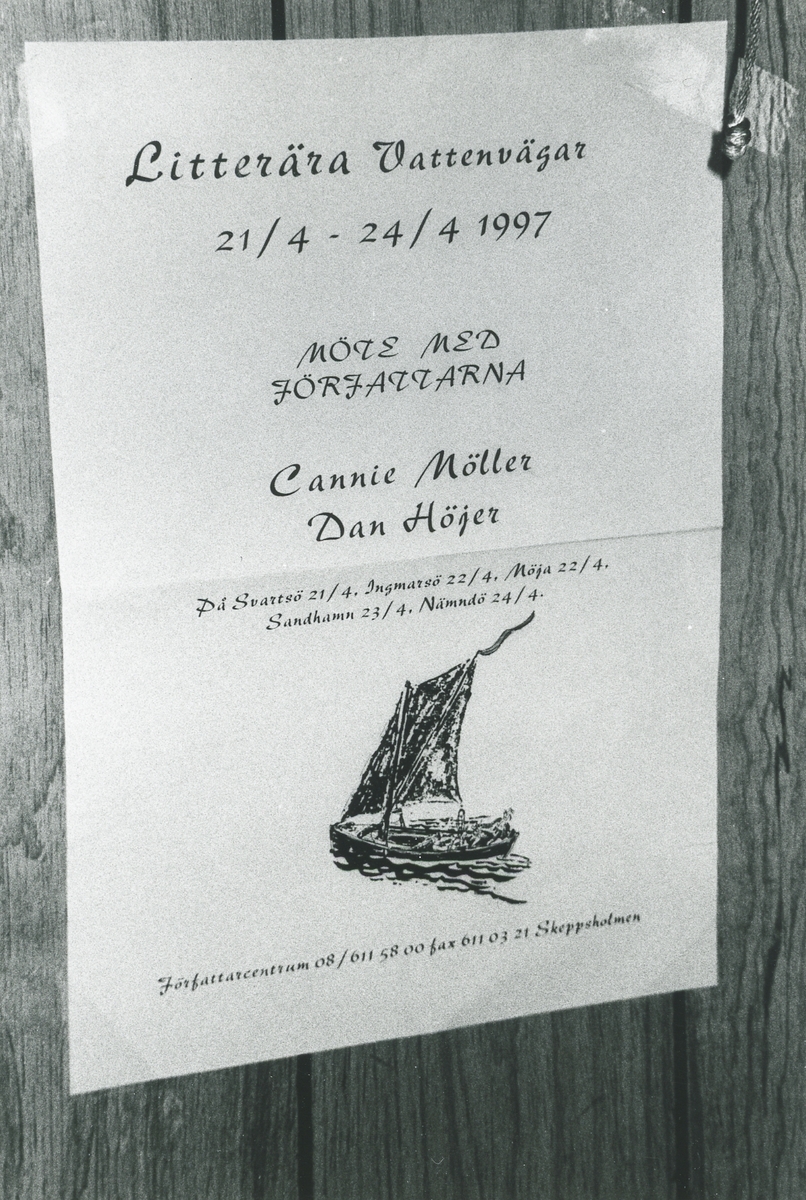 Litterära Vattenvägar
21/4 - 24/4 1997
MÖTE MED
FÖRFATTARNA
Cannie Möller
Dan Höjer
På Svartsö 21/4, Ingmarsö 22/4, Möja 22/4,
Sandhamn 23/4, Nämndö 24/4.
Författarcentrum 08/611 58 00 fax 611 03 21 Skeppsholmen